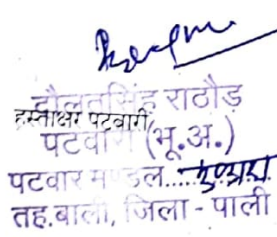 दौलतसिंह राठौड़
हस्ताक्षर पटवारी
पटवारी (भू.अ.)
पटवार मण्डल.....
तह.बाली, जिला - पाली